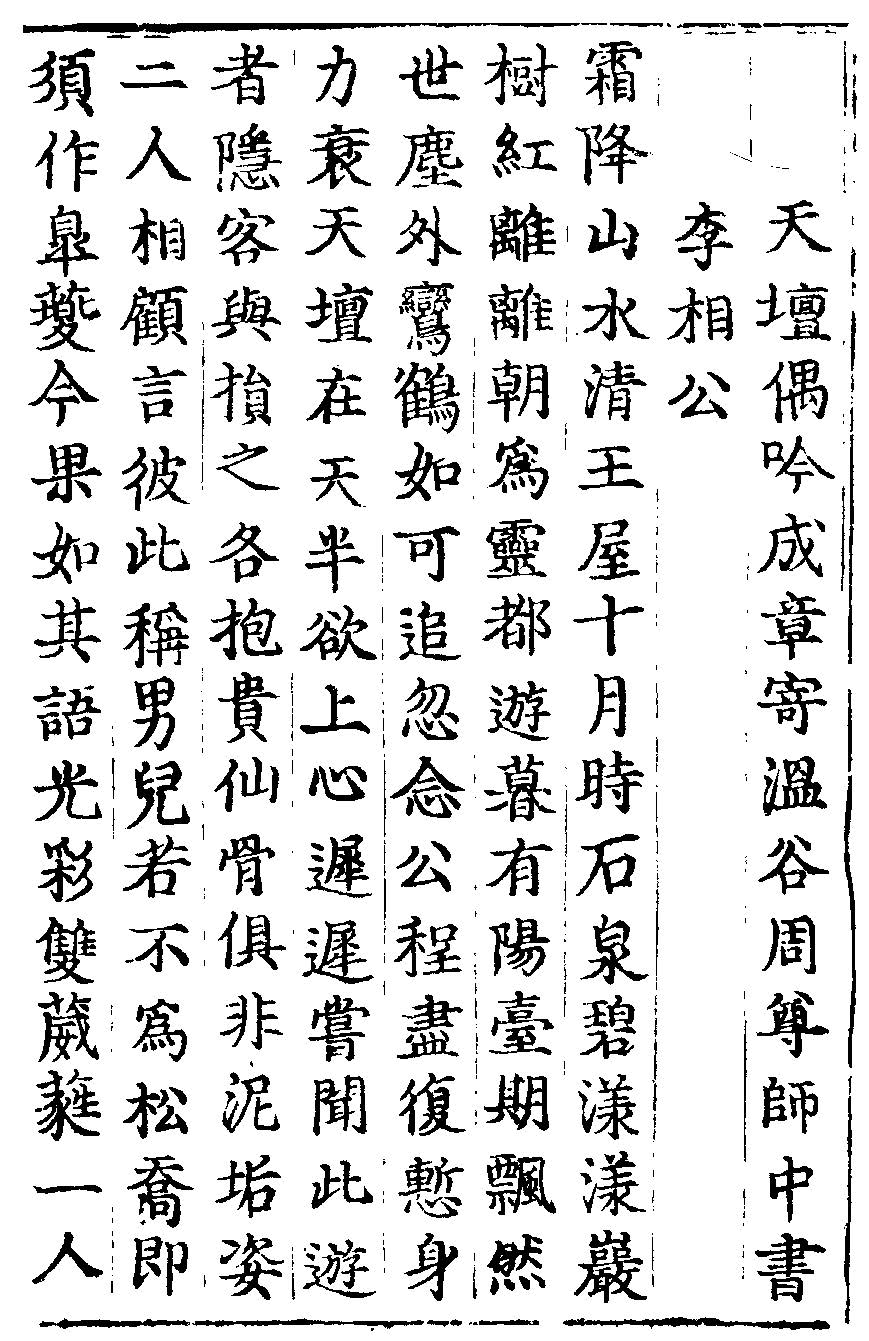 天壇偶吟成章寄溫谷周尊師中書
李相公
霜降山水清王屋十月時石泉碧漾漾巖
樹紅離離朝爲靈都遊暮有陽臺期飄然
世塵外鸞鶴如可追忽念公程盡復慙身
力衰天壇在天半欲上心遲遲嘗聞此遊
者隱客與損之各抱貴仙骨俱非泥垢姿
二人相顧言彼此稱男兒若不爲松喬即
須作臯夔今果如其語光彩雙葳蕤一人